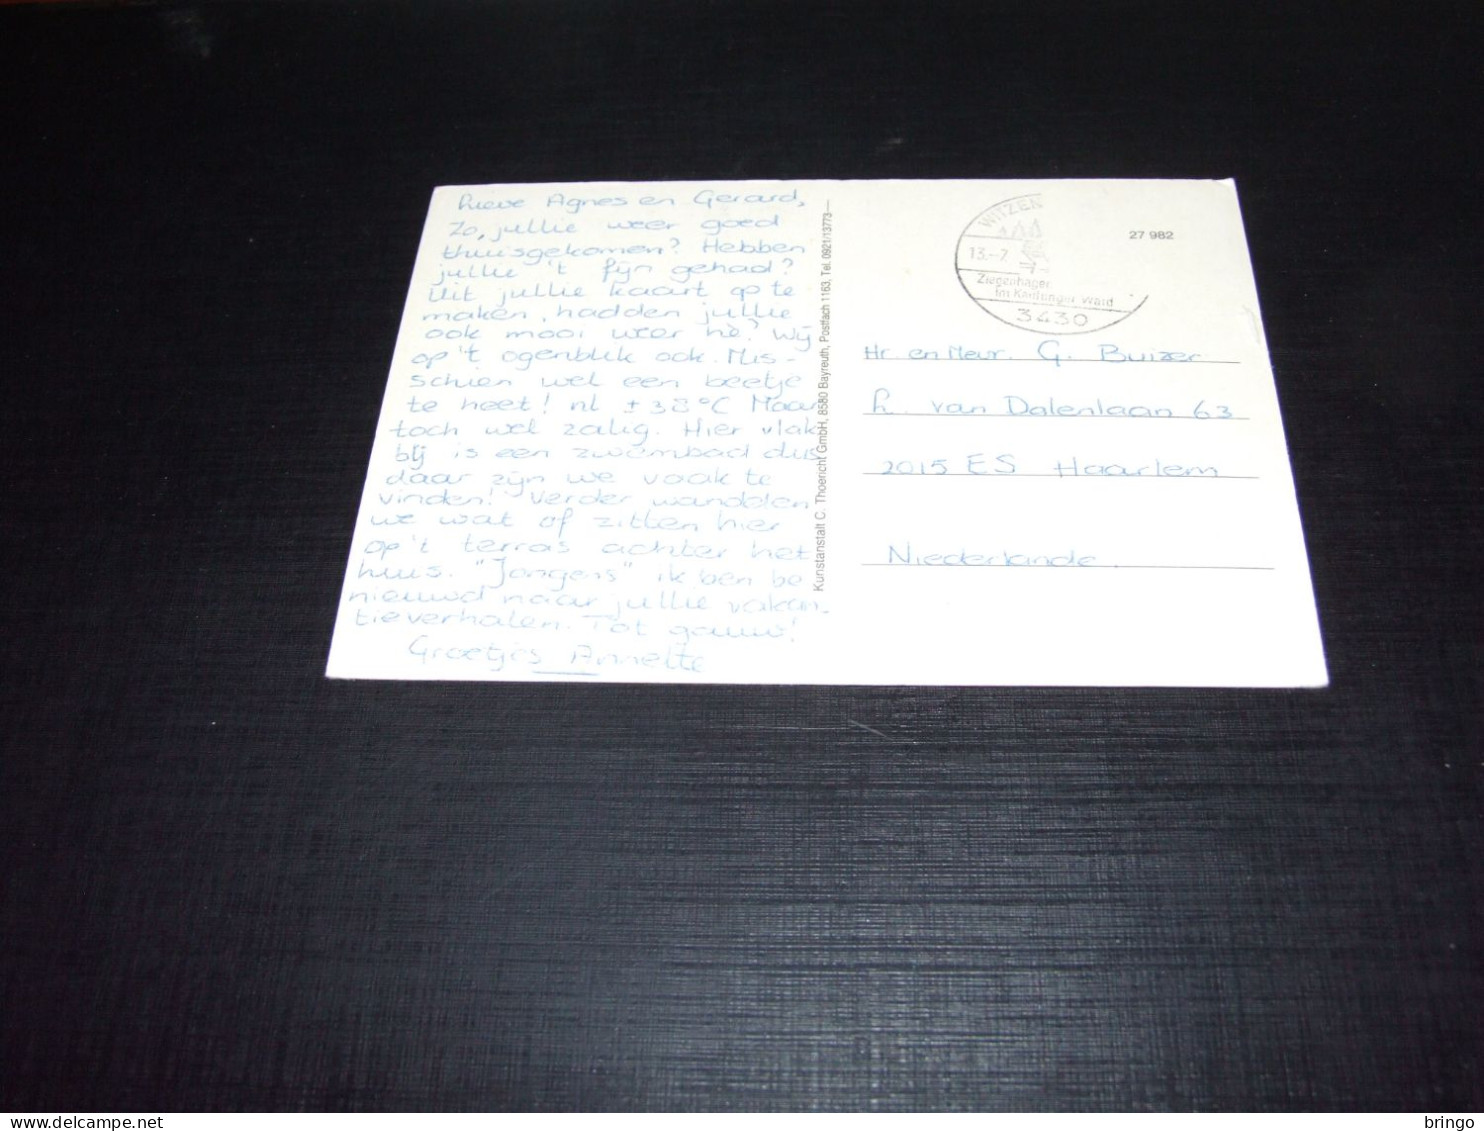 Lieve Agnes en Gerard,
Zo, jullie weer goed
thuisgekomen? Hebben
jullie 't fijn gehad?
Uit jullie kaart op te
maken, hadden jullie
ook mooi weer hè? Wij
op 't ogenblik ook. Mis-
schien wel een beetje
te heet! nl ± 38°C Maar
toch wel zalig. Hier vlak
bij is een zwembad dus
daar zijn we vaak te
vinden! Verder wandelen
we wat of zitten hier
op 't terras achter het
huis. "Jongens" ik ben be
nieuwd naar jullie vakan-
tieverhalen. Tot gauw!
Groetjes Annette
Kunstanstalt C. Thoericht GmbH, 8580 Bayreuth, Postfach 1163, Tel. 0921/13773
WITZEN
13.-7.
Ziegenhagen
im Kaufunger Wald
3430
27 982
Hr. en Mevr. G. Buizer
L. van Dalenlaan 63
2015 ES Haarlem
Niederlande
bringo